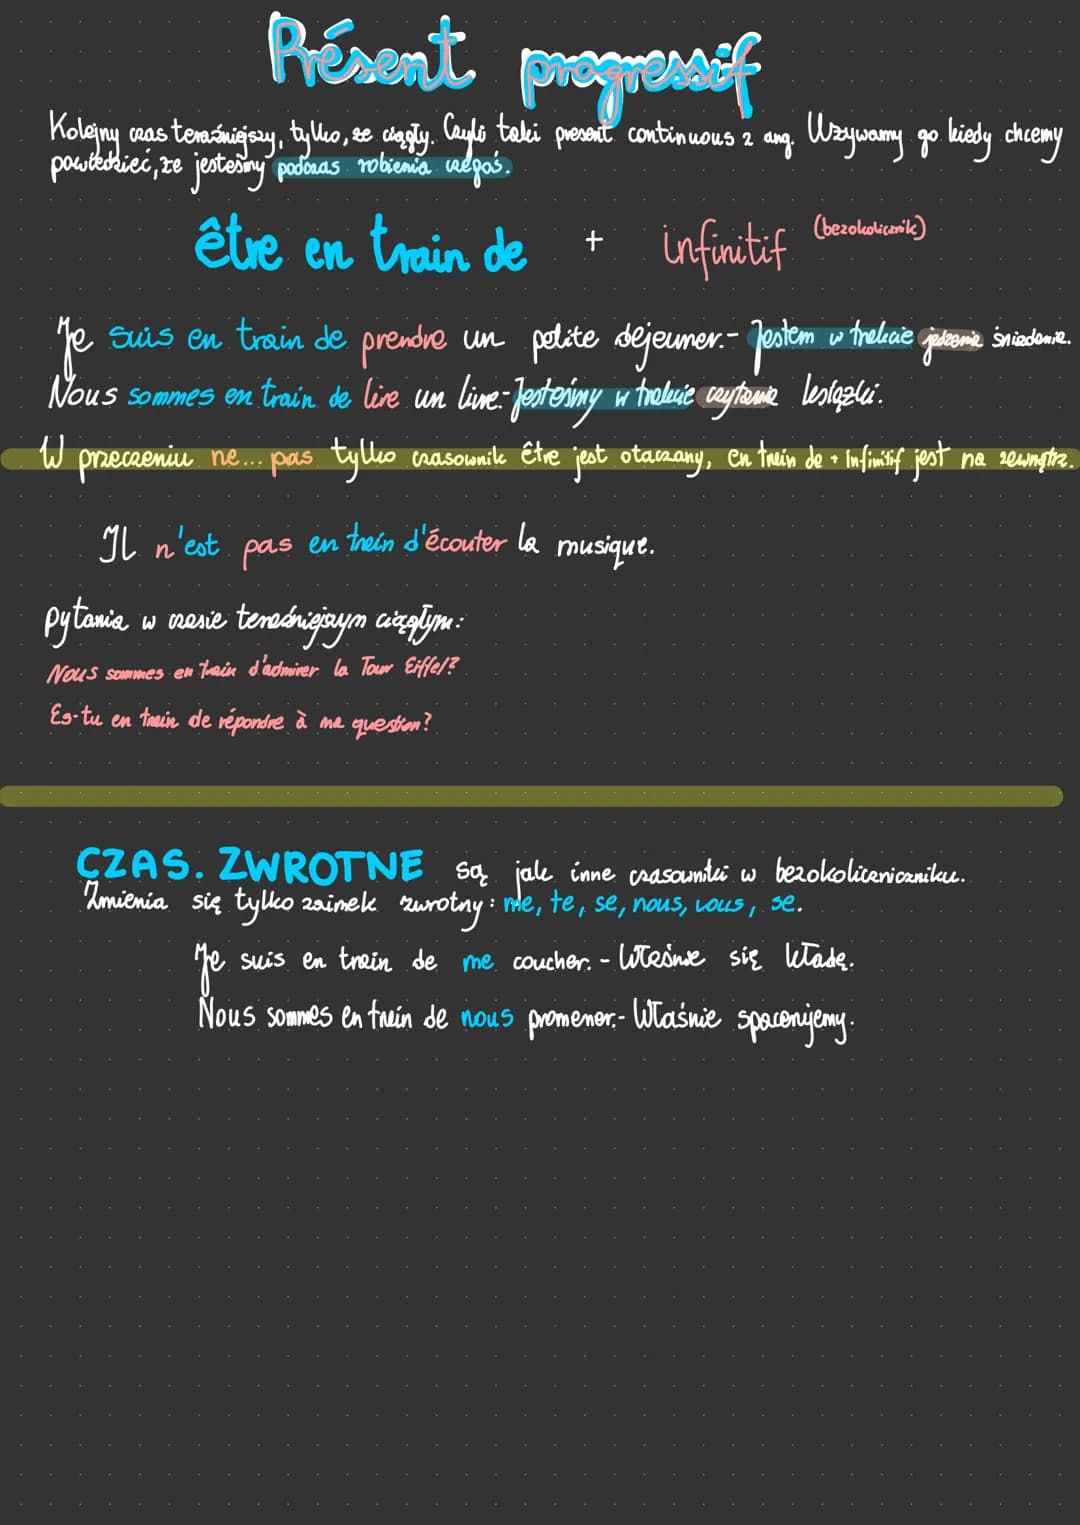 Présent progressif
Kolejny czas teraźniejszy, tylko, że ciągły. Czyli taki present continuous z ang. Używamy go kiedy chcemy
powiedzieć, że jesteśmy podczas robienia czegoś.
être en train de + infinitif (bezokolicznik)
Je suis en train de prendre un petite dejeuner.- Jestem w trakcie jedzenia śniadania.
Nous sommes en train de lire un livre.- Jesteśmy w trakcie czytania książki.
W przeczeniu ne... pas tylko czasownik être jest otaczany, en train de + Infinitif jest na zewnątrz.
Il n'est pas en train d'écouter la musique.
Pytania w czasie teraźniejszym ciągłym:
Nous sommes en train d'admirer la Tour Eiffel?
Es-tu en train de répondre à ma question?
CZAS. ZWROTNE są jak inne czasowniki w bezokoliczniczniku.
Zmienia się tylko zaimek zwrotny: me, te, se, nous, vous, se.
Je suis en train de me coucher. - Właśnie się kładę.
Nous sommes en train de nous promener.- Właśnie spacerujemy.